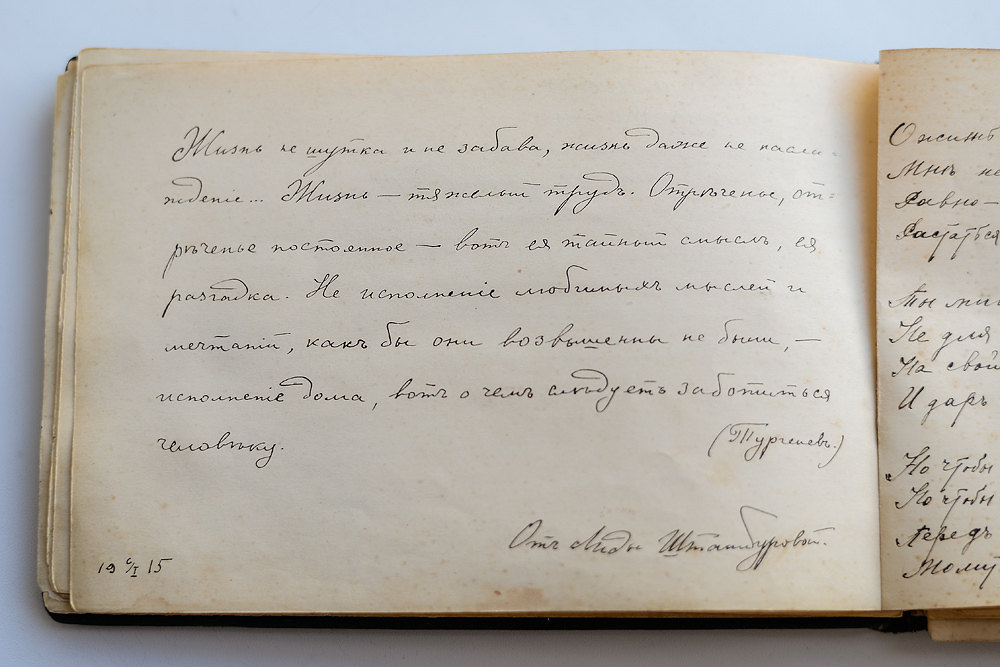 Жизнь не шутка и не забава, жизнь даже не насла-
жденіе... Жизнь — тяжелый трудъ. Отреченье, от=
реченье постоянное — вотъ ея тайный смыслъ, ея
разгадка. Не исполненіе любимыхъ мыслей и
мечтаній, какъ бы они возвышенны не были, —
исполненіе дома, вотъ о чемъ слѣдуетъ заботиться
человѣку.
(Тургеневъ.)
Отъ Лиды Штамбуровой.
19 6/I 15
О жизнь
Мнѣ не
Равно —
Растаться
Ты
Не для
На свой
И даръ
Но чтобы
Но чтобы
Передъ